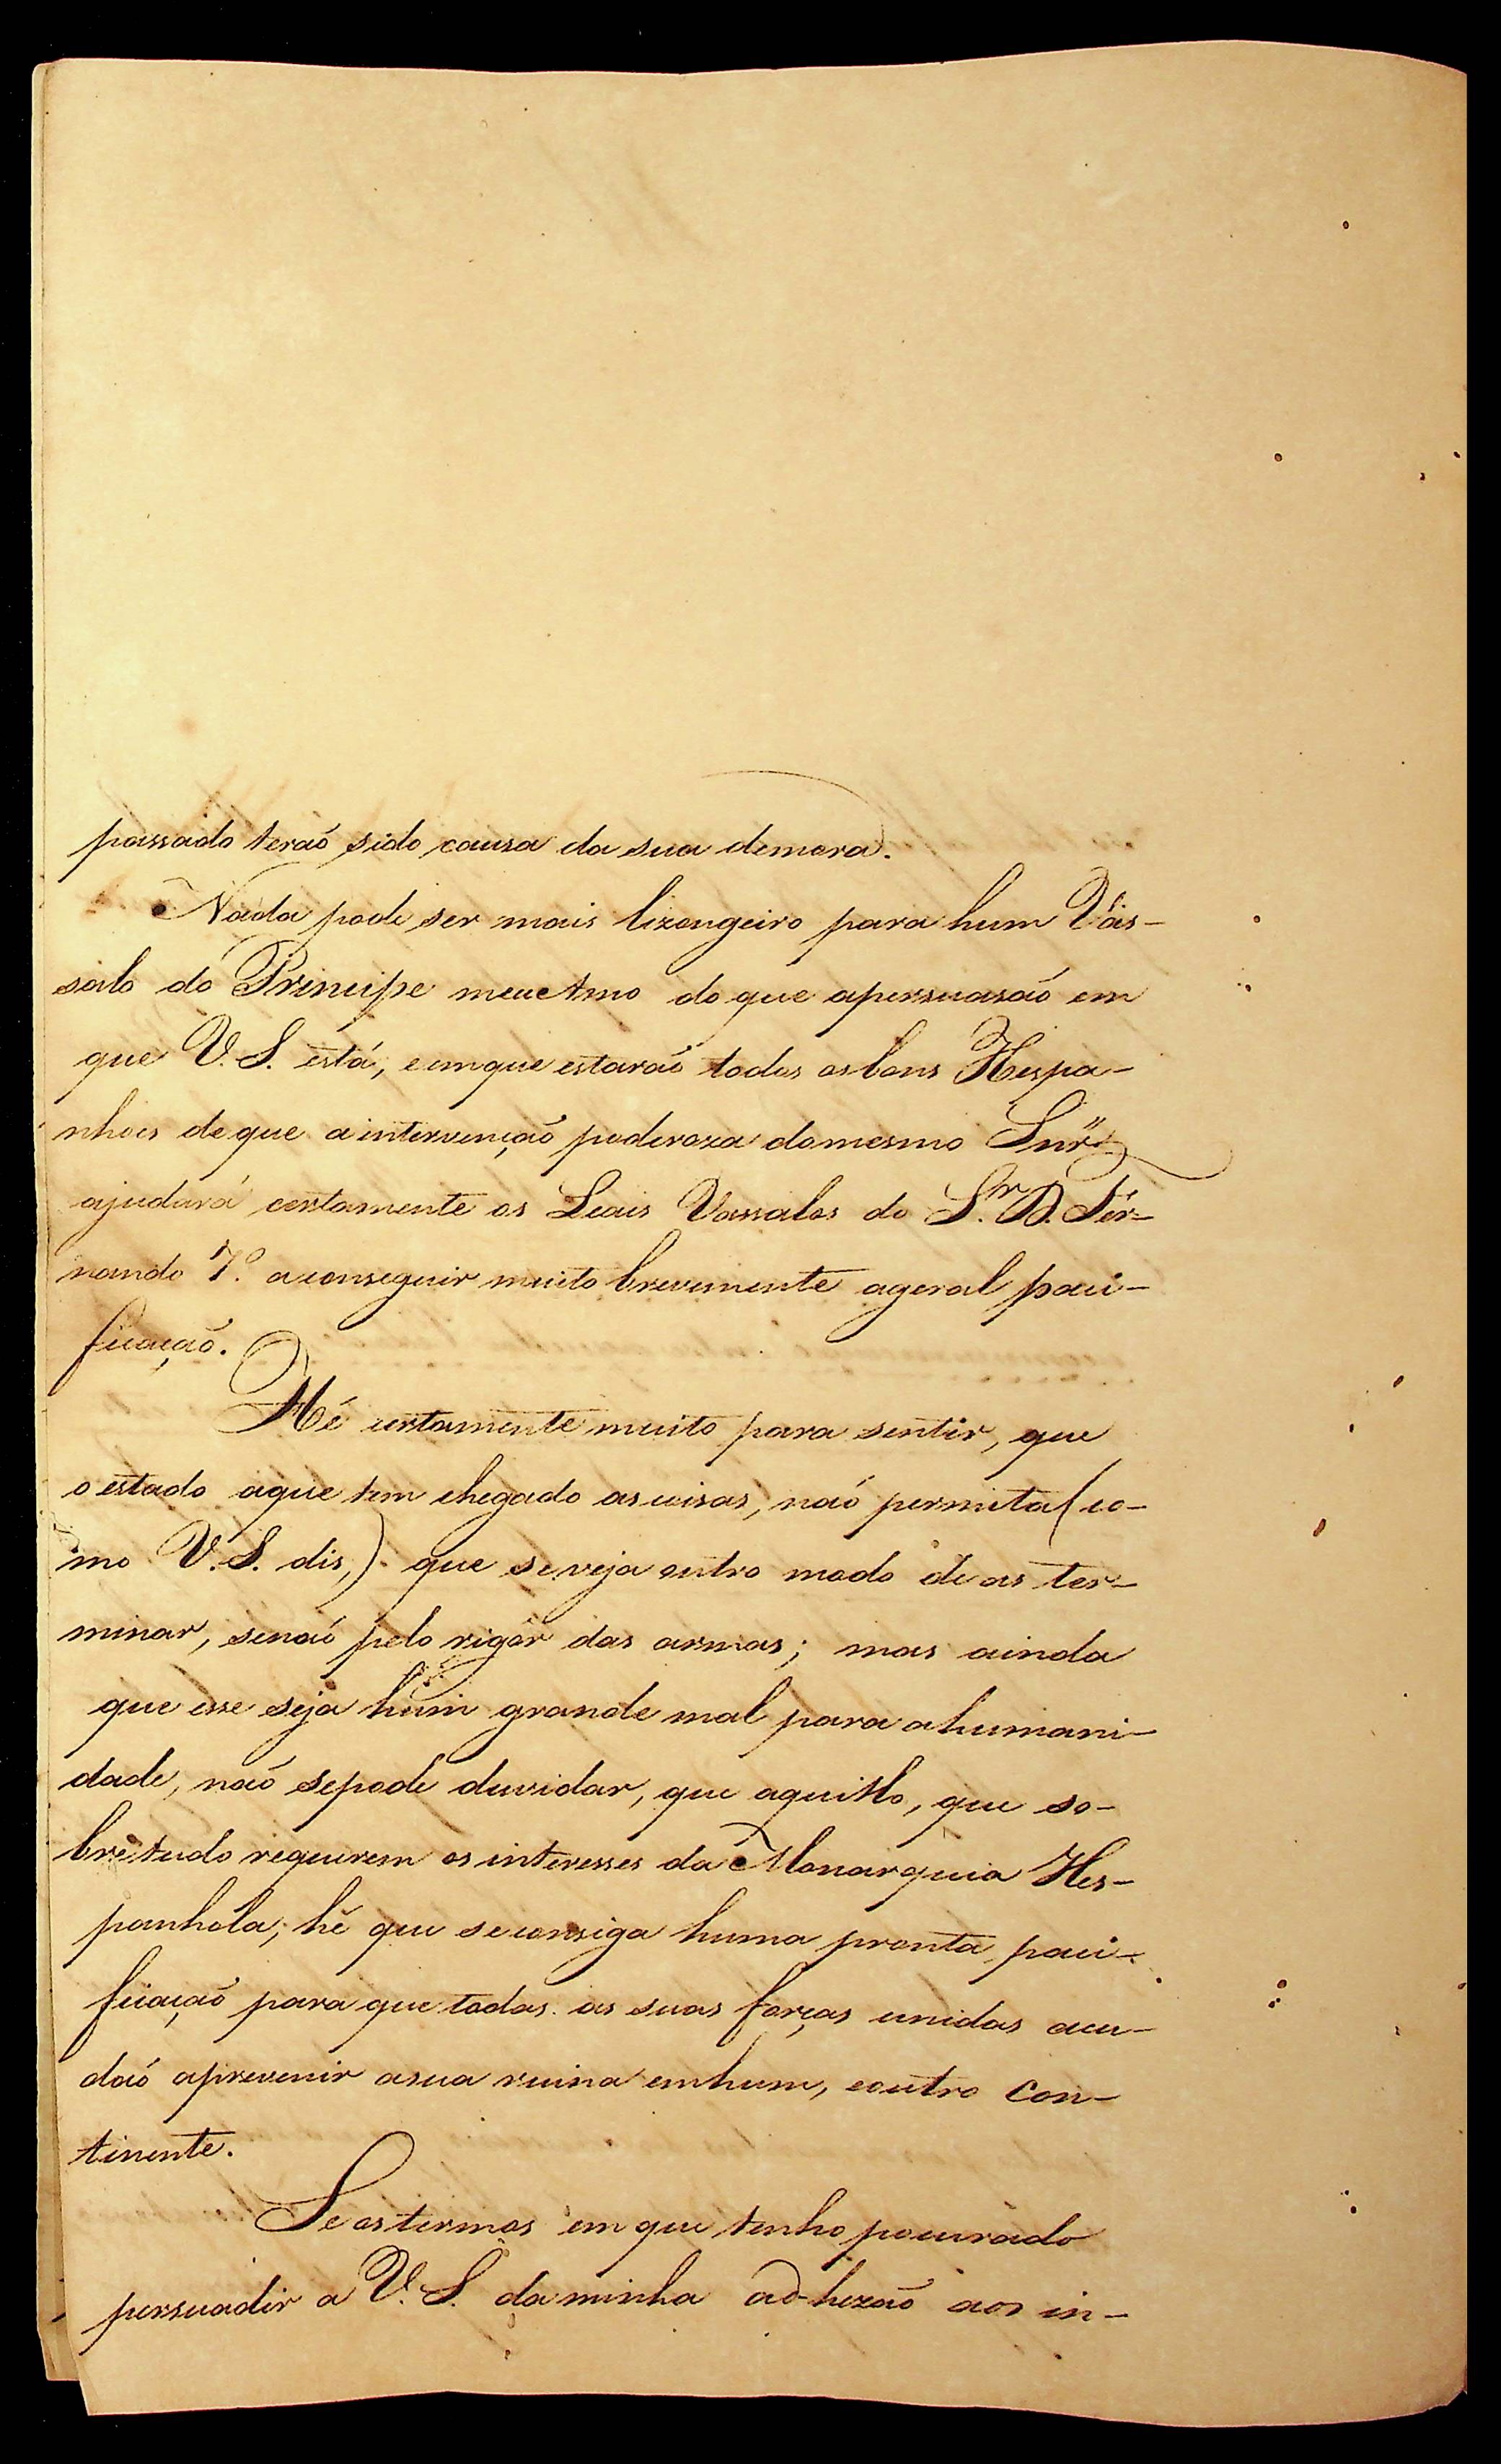 passado teraó sido causa da sua demora.
Nada pode ser mais lizongeiro para hum Vas-
salo do Principe meu Amo do que apersuasaó em
que V. S. está, eemque estaraó todos osbons Hespa-
nhoes deque aintervençaõ poderoza domesmo Snr̃
ajudará certamente os Leais Vassalos do S.r D. Fer-
nando 7.º aconseguir muito brevemente ageral paci-
ficaçaõ.
Hé certamente muito para sentir, que
o estado aque tem chegado ascoisas, naó permita (co-
mo V. S. dis,) que seveja outro modo de as ter-
minar, senaó pelo rigôr das armas; mas ainda
que esse seja hum grande mal para ahumani-
dade, naó sepode duvidar, que aquillo, que so-
bretudo requerem os interesses da Monarquia Hes-
panhola; hé que seconsiga huma pronta paci-
ficaçaõ para que todas as suas forças unidas acu-
daó aprevenir asua ruina emhum, eoutro con-
tinente.
Se ostermos em que tenho pocurado
persuadir a V. S. daminha ad-hezaõ aos in-